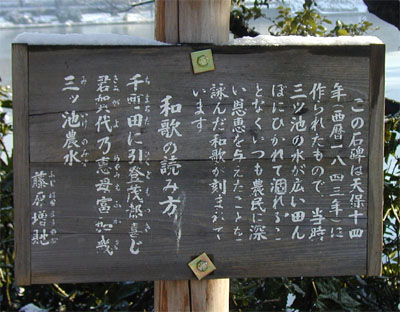 この石碑は天保十四
年(西暦一八四三年)に
作られたもので、当時
三ツ池の水が広い田ん
ぼにひかれて涸れるこ
となくいつも農民に深
い恩恵を与えたことを
詠んだ和歌が刻まれて
います
和歌の読み方
千町田に引登茂都喜じ
君加代乃恵母富加幾
三ッ池農水
藤原増財